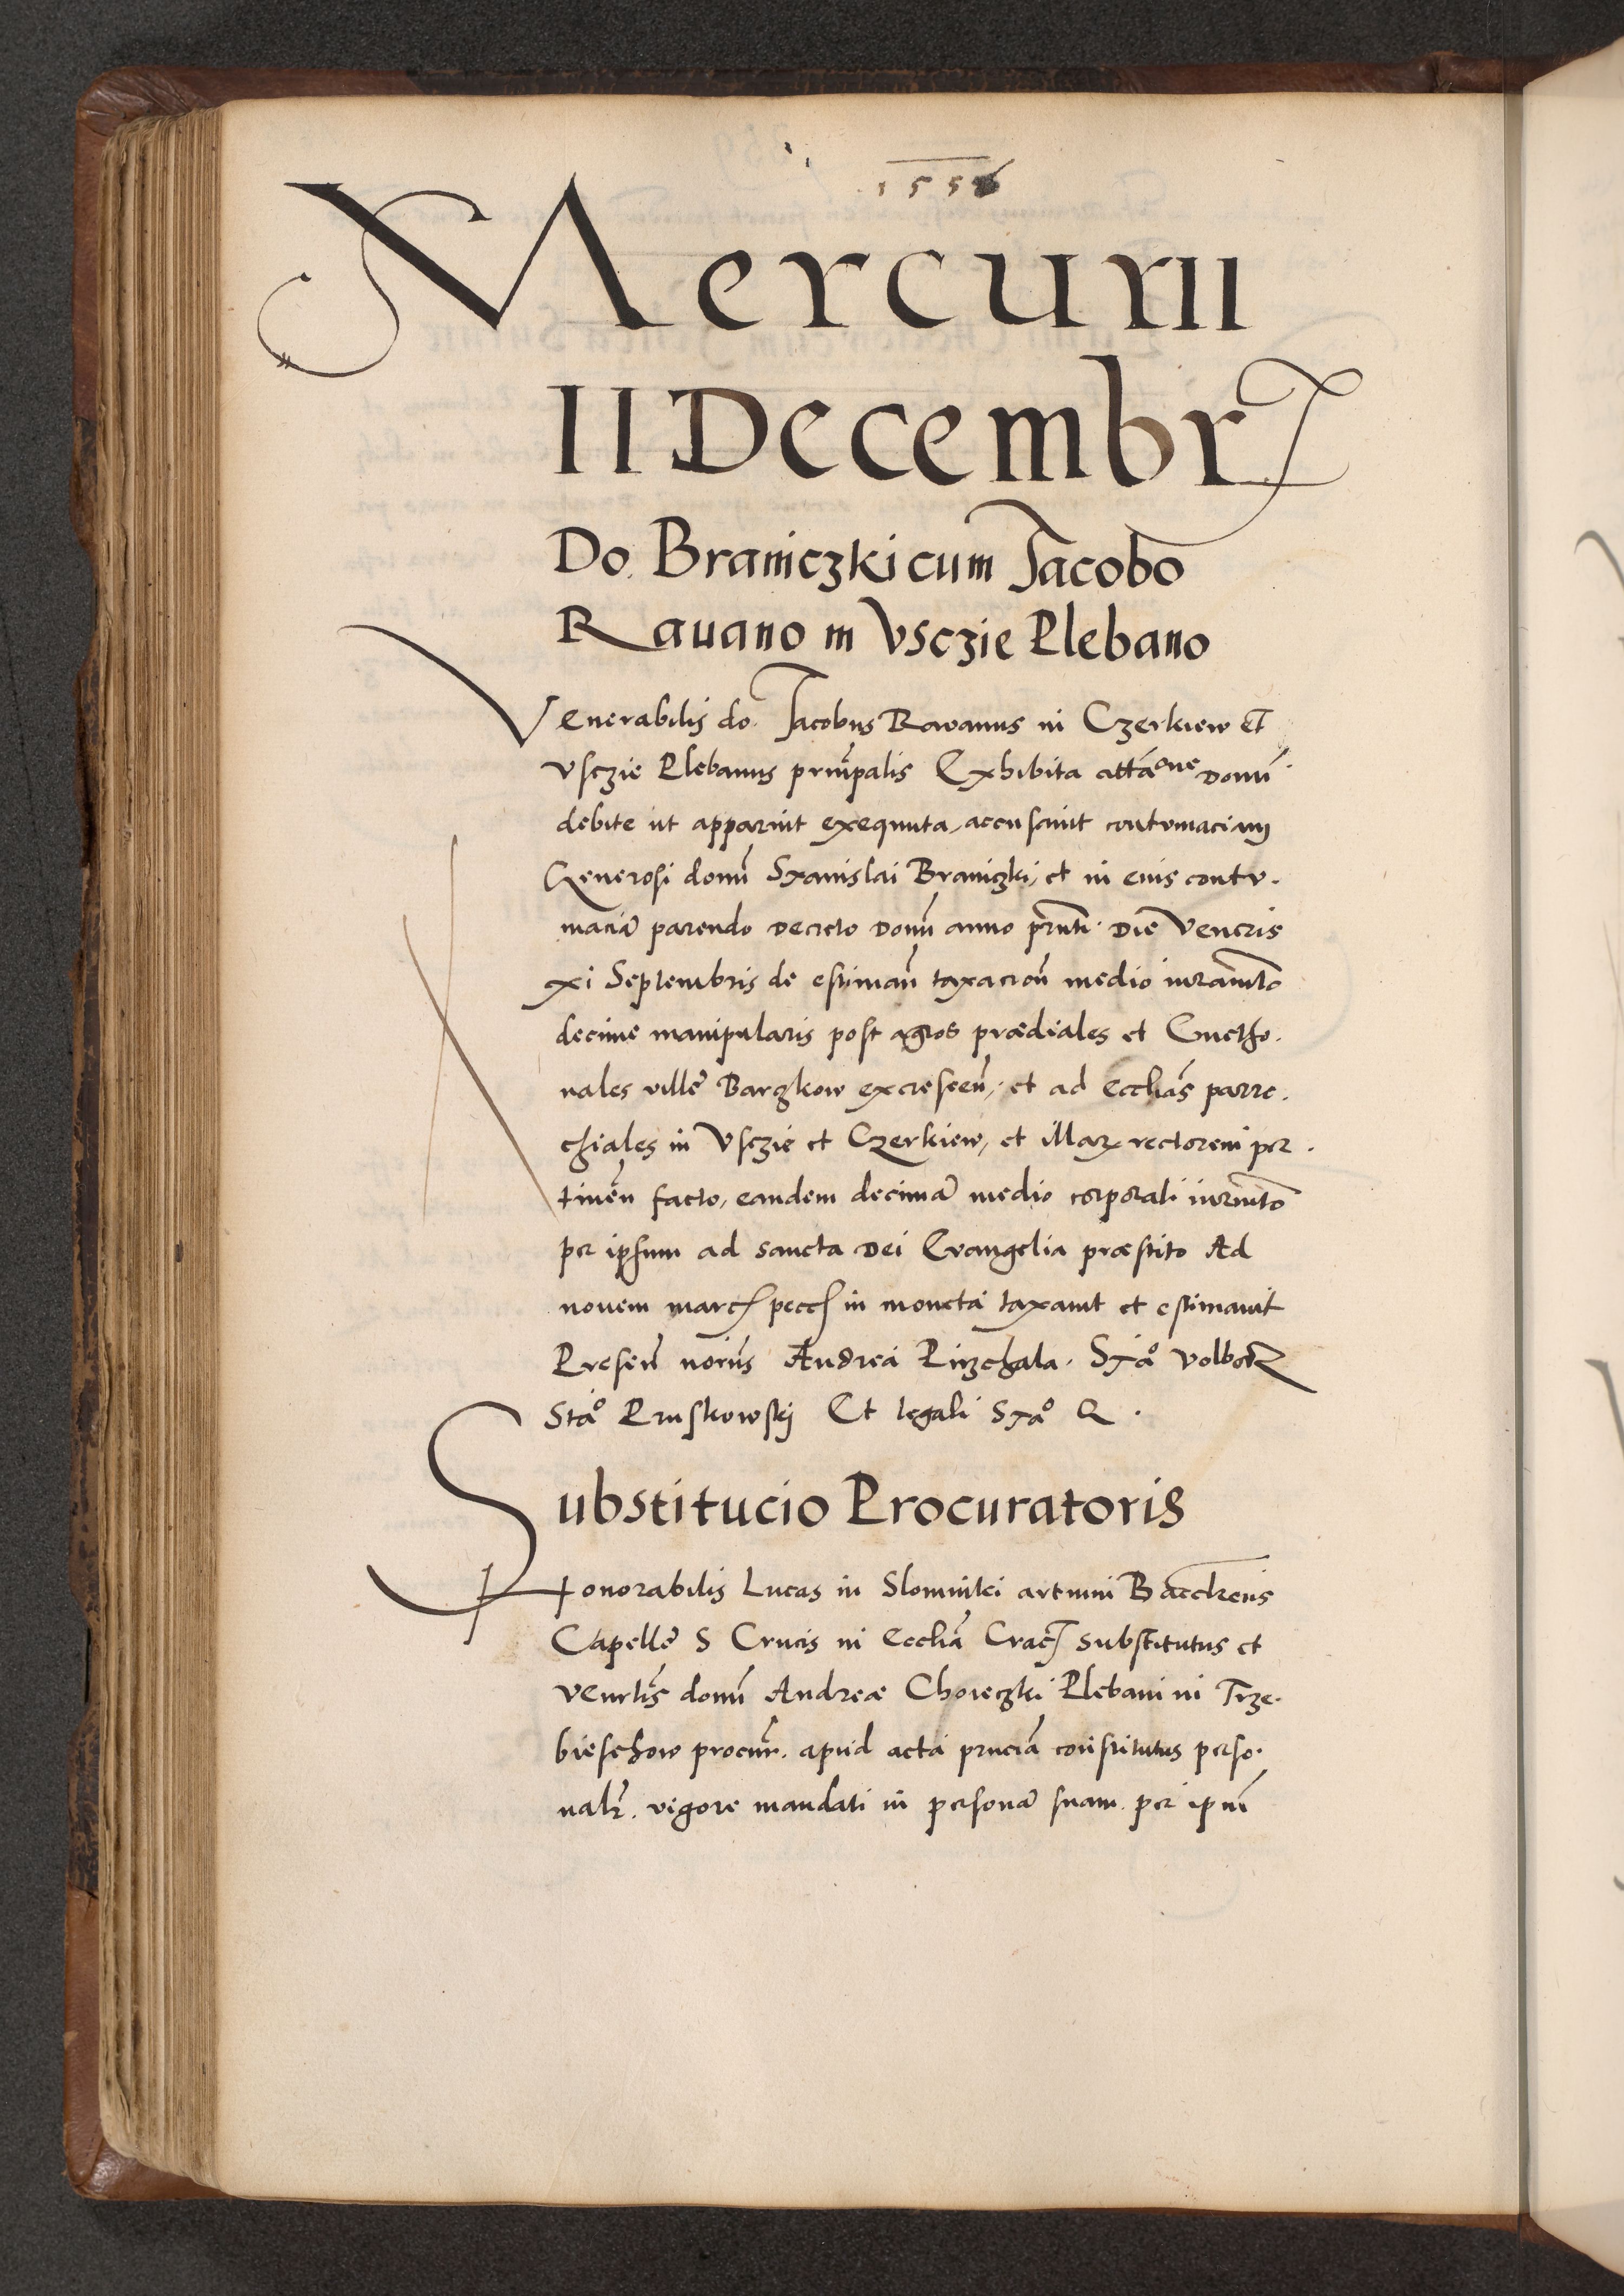 1556
Mercurii
II Decembr
Do. Braniczki cum Jacobo
Rauano in Vsczie Plebano
Venerabilis do. Jacobus Rawanus in Czerkiew et
Vsczie Plebanus prin̄palis Exhibita attāone Domī
debite ut apparuit exequuta, accusauit contumaciam
Generosi domī Stanislai Braniczki, et in eius contu.
maciā parendo Decreto Domī anno prn̄ti. Die Veneris
xi Septembris de estiman̄ taxacion̄ medio iuramto
decime manipularis post agros prædiales et Cmetho.
nales ville Barzkow excrescen̄, et ad Eccliās parro.
chiales in Vsczie et Czerkiew, et illarꝝ rectorem per.
tinēn facto, eandem decimā medio corporali iurmto
per ipsum ad sancta Dei Evangelia præstito Ad
nouem marc pecc in moneta taxauit et estimauit
Presen̄ norijs Andrea Pirzchala. Stāo Volborz
Stāo Pruskowskj Et legali Stāo Q.
Substitucio Procuratoris
Honorabilis Lucas in Slomniki artium Bacchrens
Capelle S Crucis in Eccliā Crac substitutus et
Venrlis domī Andreæ Choieczki Plebani in Trze.
bieschow procur. apud acta prnciā constitutus perso.
nalr. vigore mandati in personā suam per ipm̄